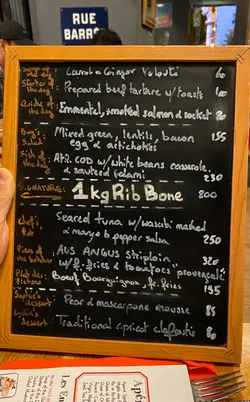 RUE
BARR
Soup of
the day : Carrot & Ginger Velouté 60
Starter of
the day : Prepared beef tartare w/ toasts 100
Quiche of
the day Emmental, smoked salmon & rocket 80
Boy's
Salad : Mixed green, lentils, bacon 155
egg & artichokes
Fish of
the Atl. COD w/ white beans casserole
& sauteed salami 230
SIGNATURE: 1kg Rib Bone 800
Chef's
Pot Seared tuna w/ wasabi mashed
& mayo & pepper salsa 250
Piece of
the butcher AUS ANGUS Striploin 320
w/ fr. fries & tomatoes provençale
Plat des
Boeuf Bourguignon, fr. fries 195
Sophie's
dessert : Pear & mascarpone mousse 85
dessert : Traditional apricot clafoutis 80
Les En
Apé